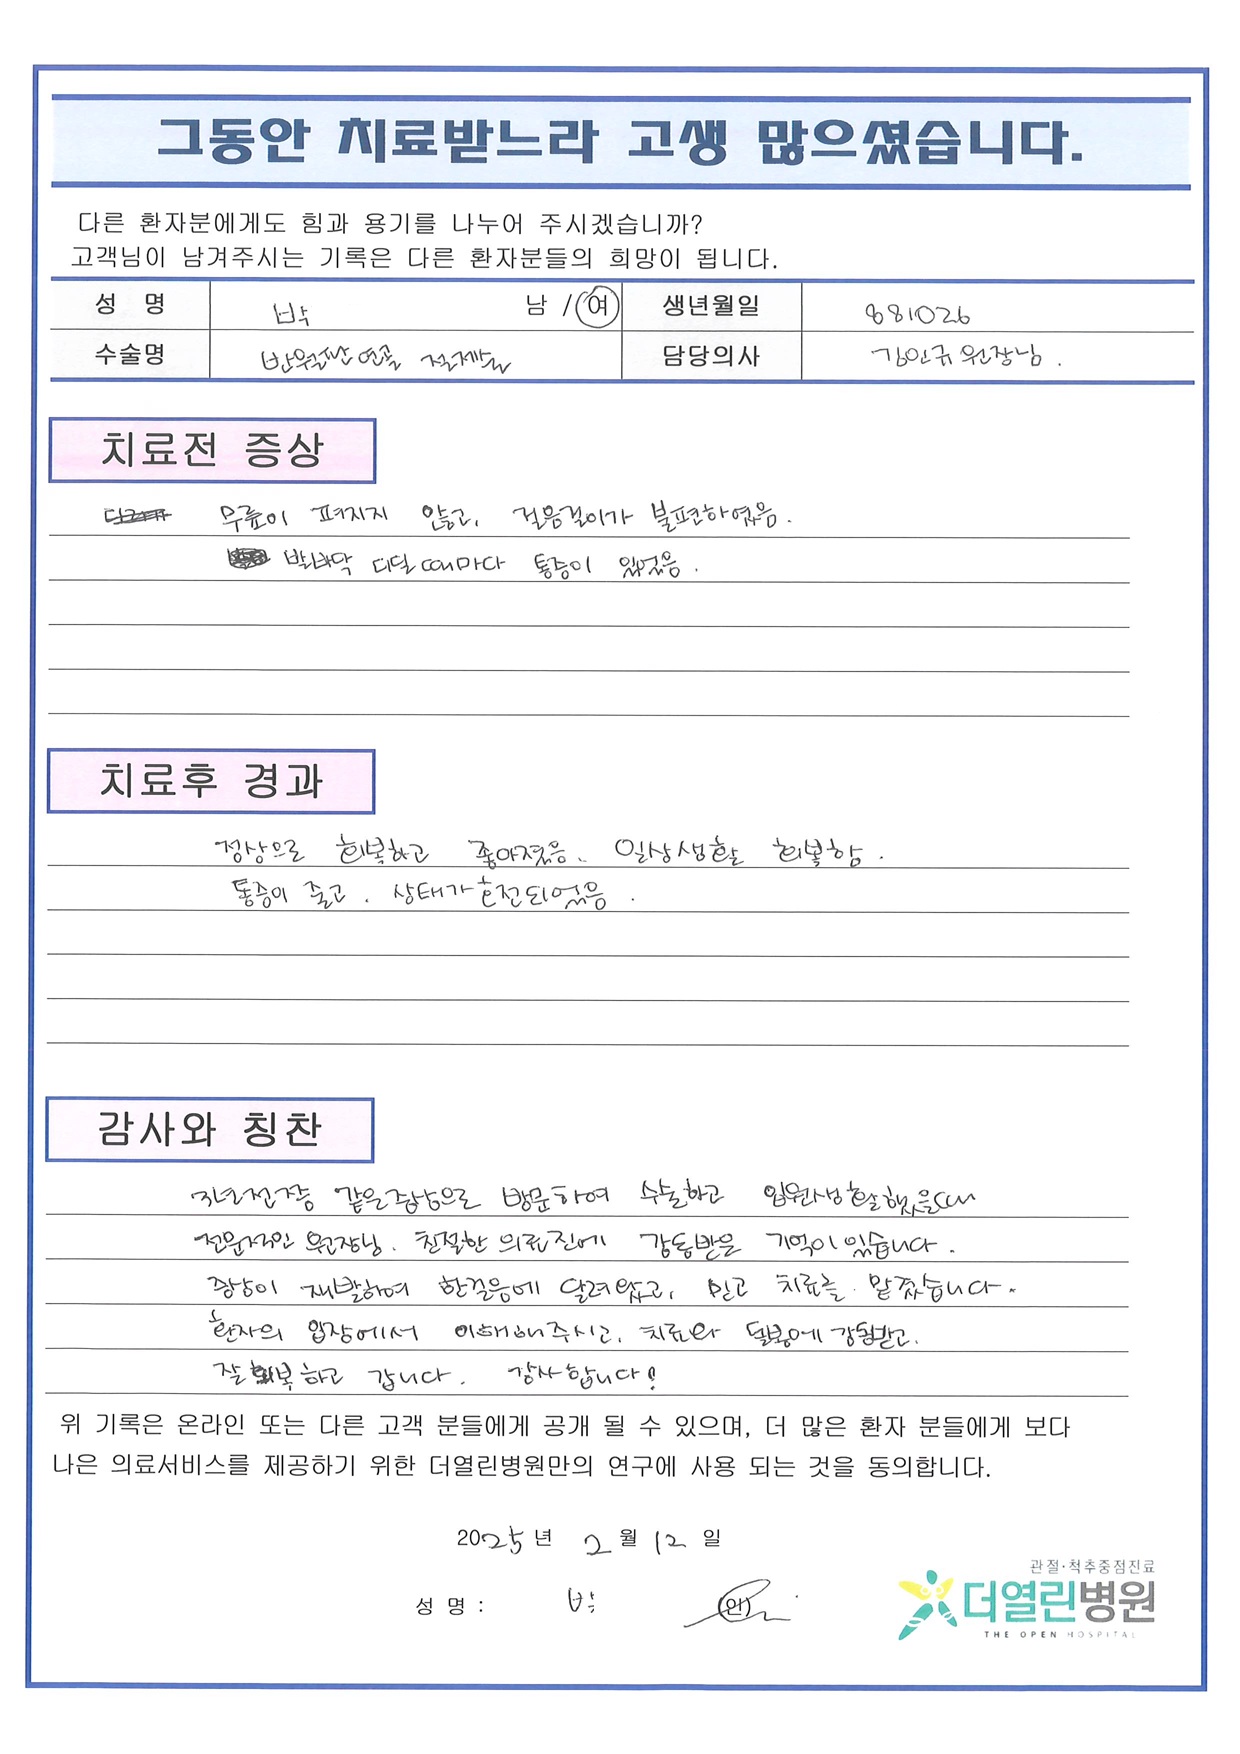 그동안 치료받느라 고생 많으셨습니다.
다른 환자분에게도 힘과 용기를 나누어 주시겠습니까?
고객님이 남겨주시는 기록은 다른 환자분들의 희망이 됩니다.
성 명 박 남 / 여 생년월일 881026
수술명 반월판연골 절제술 담당의사 김인규 원장님.
치료전 증상
무릎이 펴지지 않고, 걸음걸이가 불편하였음.
발바닥 디딜때마다 통증이 있었음.
치료후 경과
정상으로 회복하고 좋아졌음. 일상생활 회복함.
통증이 줄고, 상태가 호전되었음.
감사와 칭찬
3년전쯤 같은증상으로 방문하여 수술하고 입원생활했을때
전문적인 원장님, 친절한 의료진에 감동받은 기억이 있습니다.
증상이 재발하여 한걸음에 달려왔고, 믿고 치료를 맡겼습니다.
환자의 입장에서 이해해주시고, 치료와 감동받고.
잘 회복하고 갑니다. 감사합니다!
위 기록은 온라인 또는 다른 고객 분들에게 공개 될 수 있으며, 더 많은 환자 분들에게 보다
나은 의료서비스를 제공하기 위한 더열린병원만의 연구에 사용 되는 것을 동의합니다.
2025년 2월 12일
성 명 : 박 (인)
관절·척추중점진료
더열린병원
THE OPEN HOSPITAL